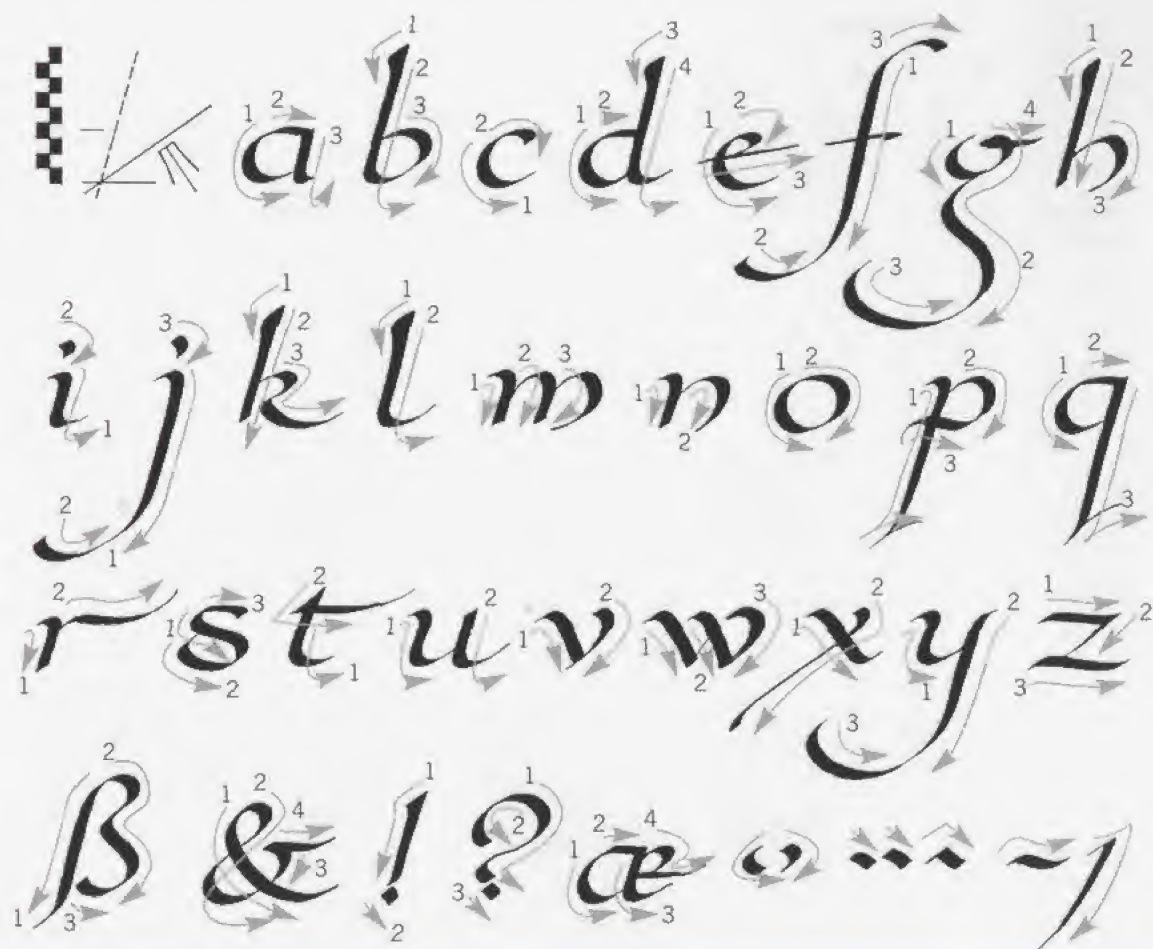 a b c d e f g h
i j k l m n o p q
r s t u v w x y z
ß & ! ? æ